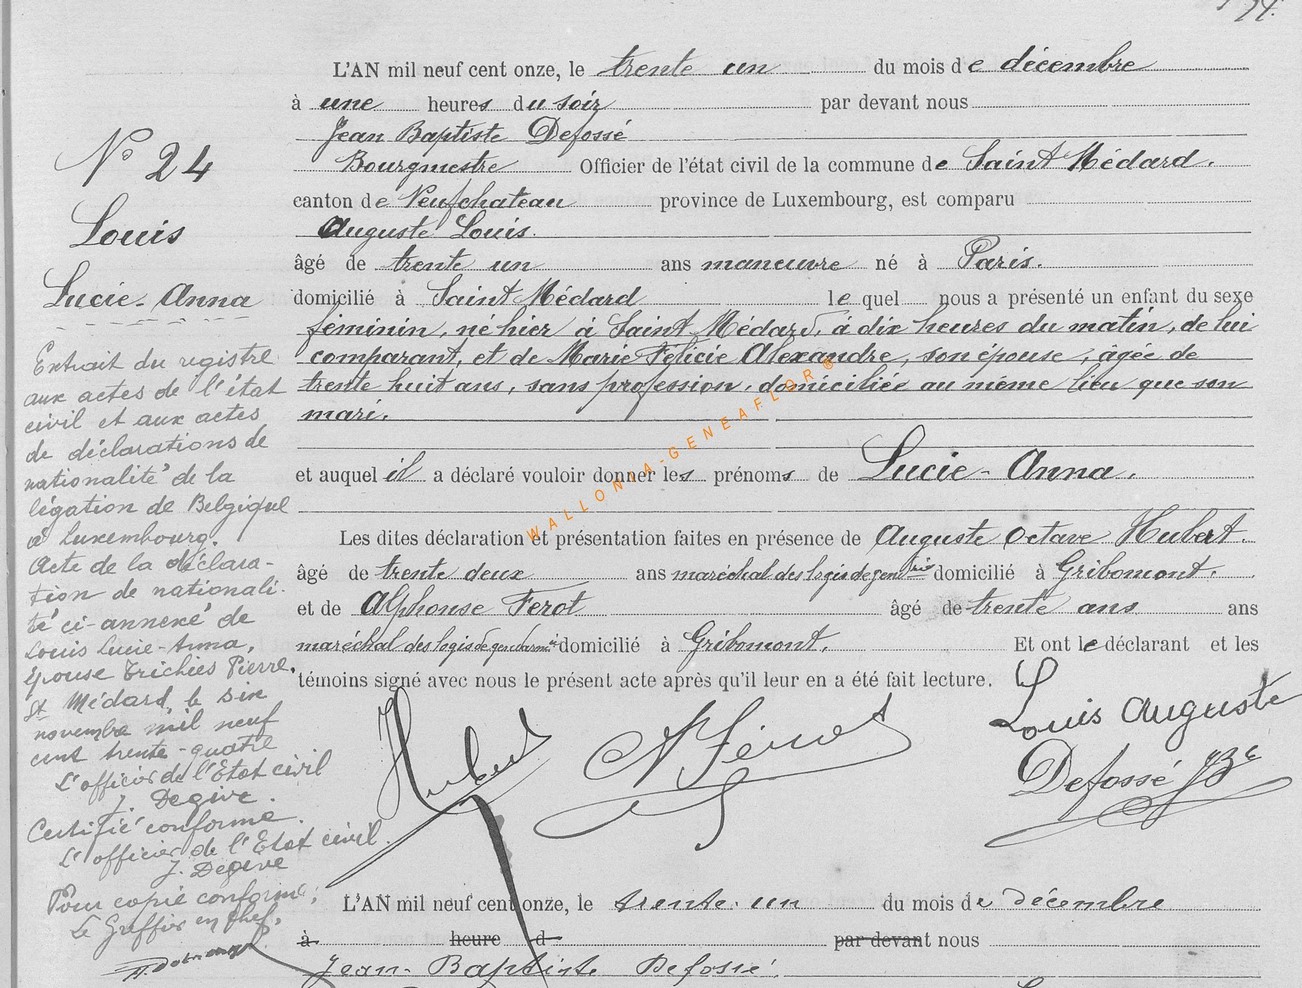 L'AN mil neuf cent onze, le trente un du mois de décembre
à une heures du soir par devant nous
Jean Baptiste Defossé
Bourgmestre Officier de l'état civil de la commune de Saint Médard.
canton de Neufchateau province de Luxembourg, est comparu
Auguste Louis.
âgé de trente un ans manœuvre né à Paris.
domicilié à Saint Médard lequel nous a présenté un enfant du sexe
féminin, né hier à Saint Médard, à dix heures du matin, de lui
comparant, et de Marie Félicie Alexandre, son épouse, âgée de
trente huit ans, sans profession, domiciliée au même lieu que son
mari.
et auquel il a déclaré vouloir donner les prénoms de Lucie-Anna.
Les dites déclaration et présentation faites en présence de Auguste Octave Hubert.
âgé de trente deux ans maréchal des logis de gendrie domicilié à Gribomont.
et de Alphonse Ferot âgé de trente ans ans
maréchal des logis de gendarmie domicilié à Gribomont. Et ont le déclarant et les
témoins signé avec nous le présent acte après qu'il leur en a été fait lecture.
Louis Auguste
Hubert
Defossé JBte
N° 24
Louis
Lucie-Anna
Extrait du registre
aux actes de l'état
civil et aux actes
de déclarations de
nationalité de la
légation de Belgique
à Luxembourg.
Acte de la déclara-
tion de nationali-
té ci-annexé de
Louis Lucie-Anna,
épouse Trichies Pierre.
St Médard, le six
novembre mil neuf
cent trente-quatre
L'officier de l'Etat civil
J. Degive.
Certifié conforme.
L'officier de l'Etat civil.
J. Degive
Pour copie conforme,
Le Greffier en chef,
L'AN mil neuf cent onze, le trente un du mois de décembre
à heure d par devant nous
Jean-Baptiste Defossé.
WALLONIA-GENEAFLOR®